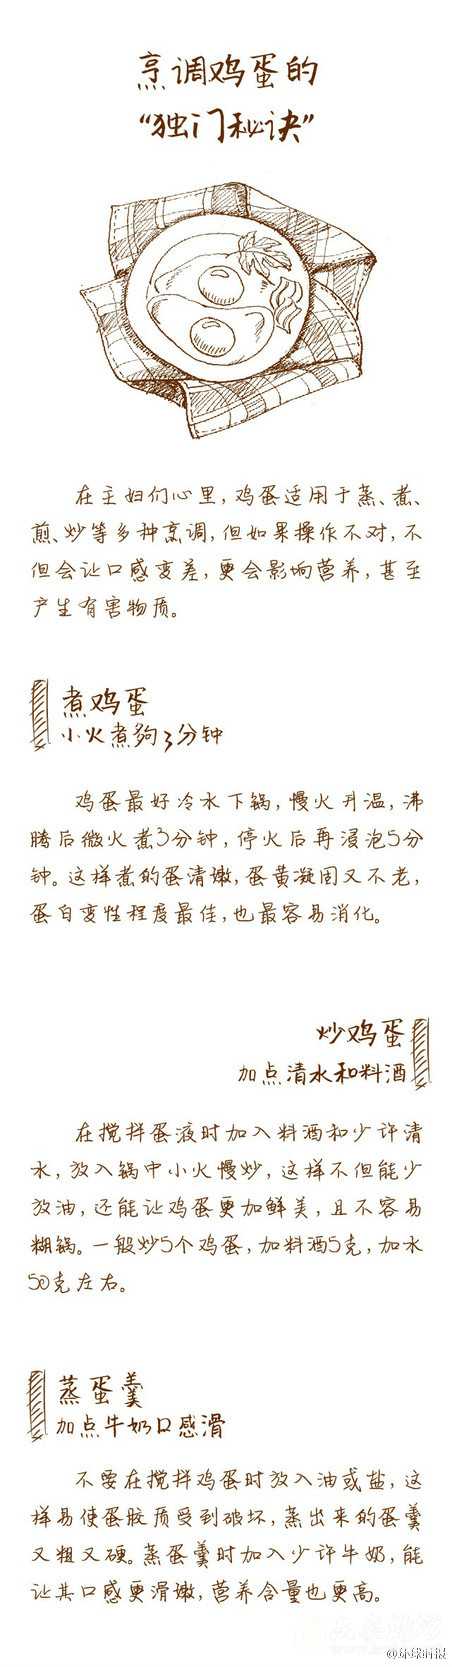 烹调鸡蛋的
“独门秘诀”
在主妇们心里，鸡蛋适用于蒸、煮、
煎、炒等多种烹调，但如果操作不对，不
但会让口感变差，更会影响营养，甚至
产生有害物质。
煮鸡蛋
小火煮够3分钟
鸡蛋最好冷水下锅，慢火升温，沸
腾后微火煮3分钟，停火后再浸泡5分
钟。这样煮的蛋清嫩，蛋黄凝固又不老，
蛋白变性程度最佳，也最容易消化。
炒鸡蛋
加点清水和料酒
在搅拌蛋液时加入料酒和少许清
水，放入锅中小火慢炒，这样不但能少
放油，还能让鸡蛋更加鲜美，且不容易
糊锅。一般炒5个鸡蛋，加料酒5克，加水
50克左右。
蒸蛋羹
加点牛奶口感滑
不要在搅拌鸡蛋时放入油或盐，这
样易使蛋胶质受到破坏，蒸出来的蛋羹
又粗又硬。蒸蛋羹时加入少许牛奶，能
让其口感更滑嫩，营养含量也更高。
@环球时报